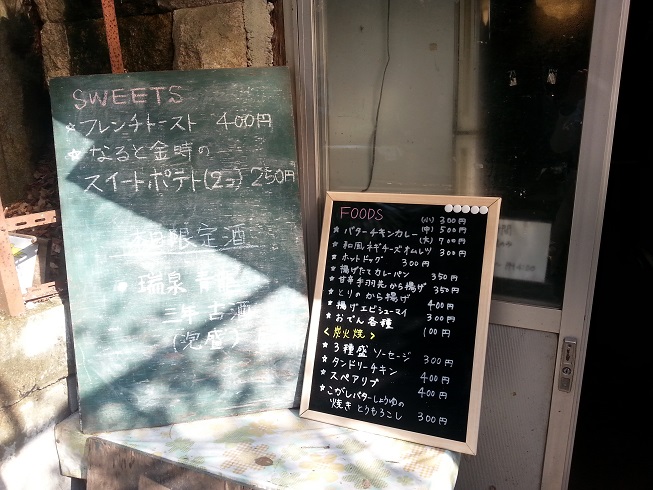 SWEETS
★フレンチトースト 400円
★なると金時の
スイートポテト(2コ)250円
限定酒
●瑞泉 青龍
三年古酒
(泡盛)
FOODS
(小)300円
★バターチキンカレー(中)500円
(大)700円
★和風ネギチーズオムレツ 300円
★ホットドッグ 300円
★揚げたてカレーパン 350円
★甘辛手羽先から揚げ 350円
★とりのから揚げ 400円
★揚げエビシューマイ 300円
★おでん各種 100円
<炭火焼>
★3種盛ソーセージ 300円
★タンドリーチキン 400円
★スペアリブ 400円
★こがしバターしょうゆの
焼きとうもろこし 300円